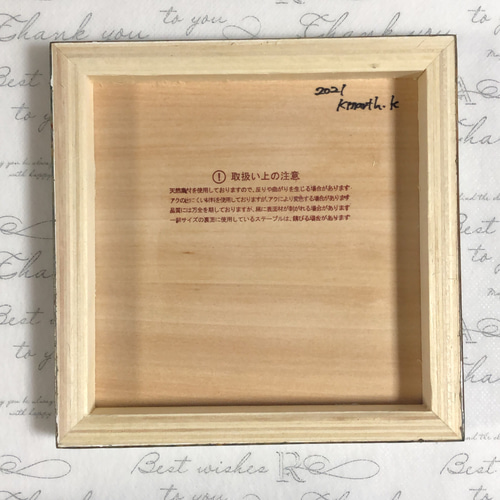 Thank you
to you
Thank you
Best
to you
2021
取扱い上の注意
天然木を使用しておりますので、反りや曲がりを生じる場合があります
アクの出にくい材料を使用しておりますが、アクにより変色する場合があります
品質には万全を期しておりますが、稀に表面材が剥がれる場合があります
一部サイズの裏面に使用しているステープルは、錆びる場合があります
to you
Best
with happy
Best wishes
R